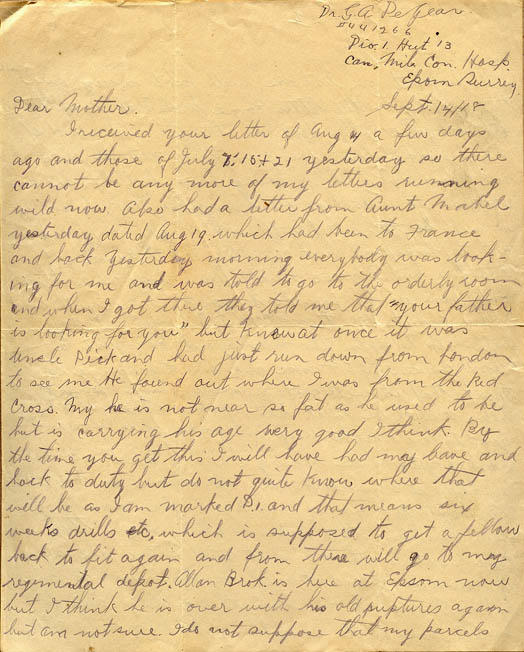 Dr. G. A. DeGear.
#441266
Div. 1. Hut 13
Can. Mila Con. Hosp.
Epsom Surrey
Sept. 14/18
Dear Mother.
I received your letter of Aug 4 a few days
ago and those of July 7, 15 + 21 yesterday so there
cannot be any more of my letters running
wild now. Also had a letter from Aunt Mabel
yesterday dated Aug 19. which had been to France
and back Yesterday morning everybody was look-
ing for me and was told to go to the orderly room
and when I got there they told me that "your father
is looking for you" but knew at once it was
Uncle Dick and had just run down from London
to see me He found out where I was from the Red
Cross. My he is not near so fat as he used to be
but is carrying his age very good I think. By
the time you get this I will have had may leave and
back to duty but do not quite know where that
will be as I am marked D1 and that means six
weeks drills etc, which is supposed to get a fellow
back to fit again and from there will go to my
regimental depot. Allan Brok is here at Epsom now
but I think he is over with his old ruptures again
but am not sure. I do not suppose that my parcels